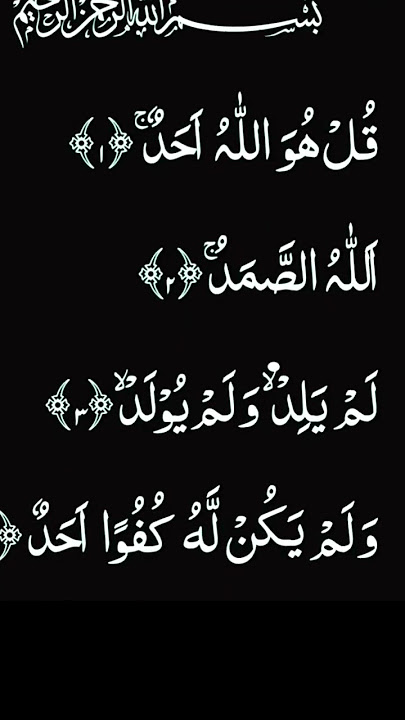 بِسْمِ اللهِ الرَّحْمٰنِ الرَّحِيْمِ
قُلْ هُوَ اللّٰهُ اَحَدٌ ۚ ﴿١﴾
اَللّٰهُ الصَّمَدُ ۚ ﴿٢﴾
لَمْ يَلِدْ ۙ وَلَمْ يُوْلَدْ ۙ ﴿٣﴾
وَلَمْ يَكُنْ لَّهٗ كُفُوًا اَحَدٌ ﴿